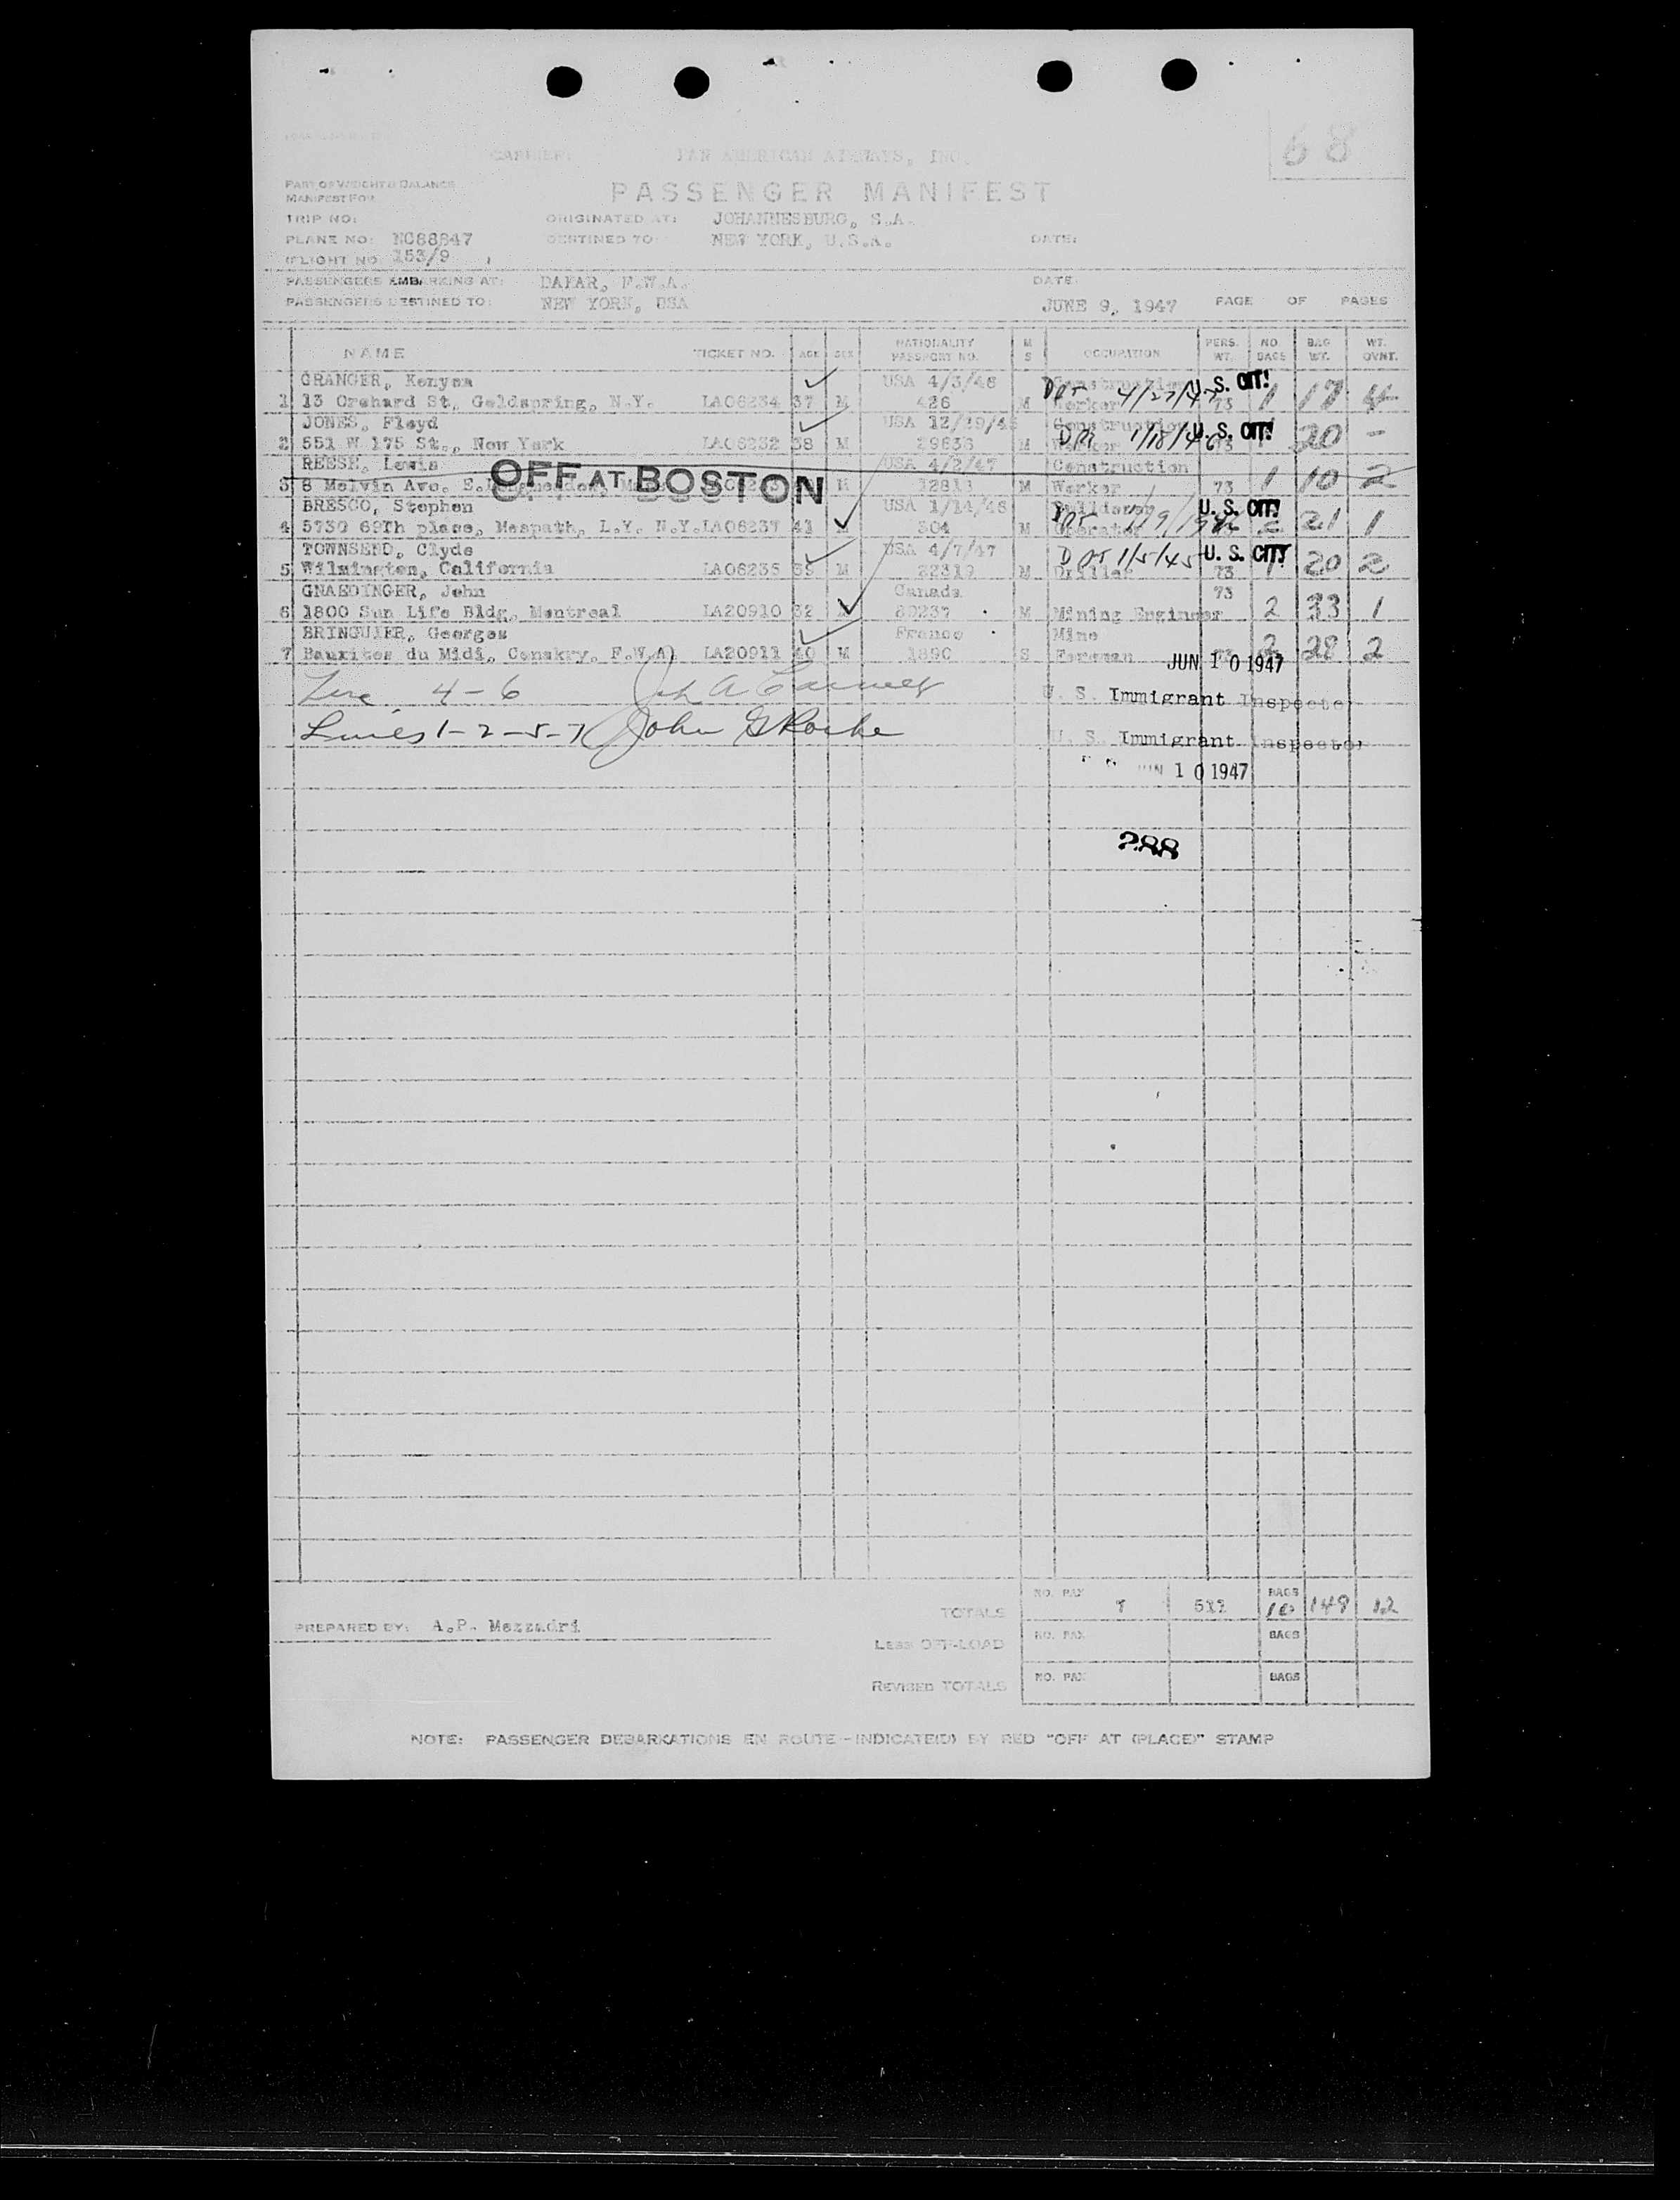 68
CARRIER: PAN AMERICAN AIRWAYS, INC.
PART OF WEIGHT & BALANCE
MANIFEST FOR
PASSENGER MANIFEST
TRIP NO: ORIGINATED AT: JOHANNESBURG, S.A.
PLANE NO: NC88847 DESTINED TO: NEW YORK, U.S.A. DATE:
(FLIGHT NO. 153/9 )
PASSENGERS EMBARKING AT: DAKAR, F.W.A. DATE:
PASSENGERS DESTINED TO: NEW YORK, USA JUNE 9, 1947 PAGE OF PAGES
NAME TICKET NO. AGE SEX NATIONALITY PASSPORT NO. M S OCCUPATION PERS. WT. NO. BAGS BAG WT. WT. OVNT.
GRANGER, Kenyon USA 4/3/46 Construction U. S. CIT!
1 13 Orchard St, Coldspring, N.Y. LA06234 37 M 426 M Worker 4/27/47 73 1 17 4
JONES, Floyd USA 12/19/45 Construction
2 551 W 175 St., New York LA06232 38 M 29636 M Worker 1/18/46 U. S. CIT! 73 1 20 -
REESE, Lewis USA 4/2/47 Construction
3 8 Melvin Ave, OFF AT BOSTON M M Worker 73 1 10 2
BRESCO, Stephen USA 1/14/46 Bulldozer U. S. CIT!
4 5730 69Th place, Maspath, L.Y. N.Y. LA06237 41 M 304 M Operator 2 21 1
TOWNSEND, Clyde USA 4/7/47 1/5/45 U. S. CIT!
5 Wilmington, California LA06235 M 22319 M Driller 73 1 20 2
GNAEDINGER, John Canada 73
6 1800 Sun Life Bldg, Montreal LA20910 32 80237 M Mining Engineer 2 33 1
BRINGUIER, Georges France Mine
7 Bauxites du Midi, Conakry, F.W.A) LA20911 40 M 1890 S Foreman 73 2 28 2
JUN 10 1947
Line 4-6
U. S. Immigrant Inspector
Lines 1-2-5-7 John G Roche
U. S. Immigrant Inspector
JUN 10 1947
288
TOTALS NO. PAX 7 511 BAGS 10 149 12
PREPARED BY: A.P. Mezzadri
Less OFF-LOAD NO. PAX BAGS
REVISED TOTALS NO. PAX BAGS
NOTE: PASSENGER DEBARKATIONS EN ROUTE-INDICATE(D) BY RED "OFF AT (PLACE)" STAMP